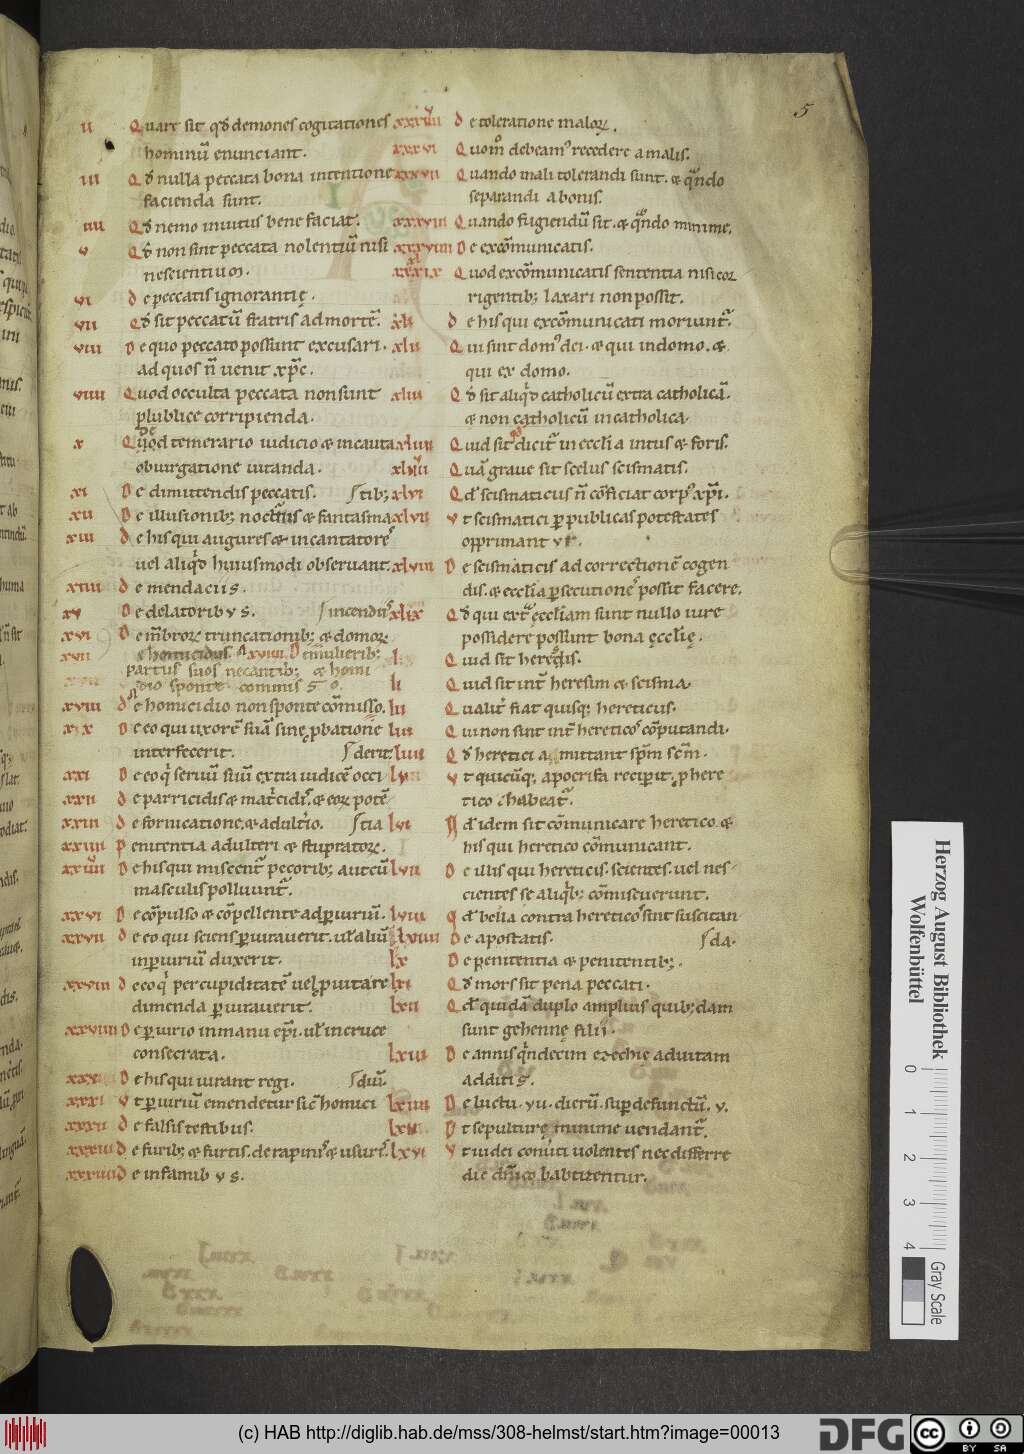 5
ii Quare sit qd demones cogitationes
hominū enunciant.
iii Qd nulla peccata bona intentione
facienda sunt.
iiii Qd nemo invitus bene faciat.
v Qd non sint peccata nolentiū nisi
nescientium.
vi De peccatis ignorantię.
vii Qd sit peccatū fratris ad mortē.
viii De quo peccato possunt excusari.
ad quos n̄ uenit xp̄c.
viiii Quod occulta peccata non sunt
plublice corripienda.
x Quod de temerario iudicio & incauta
obiurgatione uitanda.
xi De dimittendis peccatis. tib;
xii De illusionib; nocturnis & fantasma
xiii De his qui augures & incantatores
uel aliqd huiusmodi obseruant.
xiiii De mendaciis.
xv De delatoribus. incendiis
xvi De mēbrorum truncationib; & domorum
xvii & homicidiis. De mulierib;
partus suos necantib; & homi
dio sponte commisso.
xviii De homicidio non sponte cōmisso.
xix De eo qui uxorē suā sine pbatione
interfecerit. derit.
xxi De eo qi seruū suū extra iudicē occi
xxii De parricidis & matricidis. & eorum potē
xxiii De fornicatione. & adultio. tia
xxiiii Penitentia adulteri & stupratorum.
xxiiiii De his qui miscent pecorib; aut cū
masculis polluunt.
xxvi De cōpulso & cōpellente ad piuriū.
xxvii De eo qui sciens piurauerit. uł aliū
in piuriū duxerit.
xxviii De eo qi per cupiditatē uel p uitare
dimenda piurauerit.
xxviiii De piurio in manu ep̄i. uł in cruce
consecrata.
xxx De his qui iurant regi. diū.
xxxi Ut piuriū emendetur sic homici
xxxii De falsis testibus.
xxxiii De furib; & furtis. de rapinis & usuris.
xxxiiii De infamibus.
De toleratione malorum.
xxxvi Quom̄ debeam recedere a malis.
xxxvii Quando mali tolerandi sunt. & qndo
separandi a bonis.
xxxviii Quando fugiendū sit. & qndo minime.
xxxviiii De excōmunicatis.
xxxix Quod excōmunicatis sententia nisi cor
rigentib; laxari non possit.
xli De his qui excōmunicati moriunt.
xlii Qui sint dom dei. & qui in domo. &
qui ex domo.
xliii Qd sit aliqd catholicū extra catholicā.
& non catholicū in catholica.
xliiii Quid sit qd dicit in ecclia intus & foris.
Quā graue sit scelus scismatis.
xlvi Qd scismaticus n̄ cōficiat corp xp̄i.
xlvii Ut scismatici p publicas potestates
opprimantur.
xlviii De scismaticis ad correctionē cogen
dis. & ecclia psecutionē possit facere.
xlix Qd qui extra ęccliam sunt nullo iure
possidere possunt bona ęcclię.
l Quid sit heresis.
li Quid sit int heresim & scisma.
lii Qualit fiat quisq; hereticus.
liii Qui non sunt int hereticos cōputandi.
liiii Qd heretici amittant sp̄m sc̄m.
lv Ut quicūq; apocrifa recipit. p here
tico habeat.
lvi Qd idem sit cōmunicare heretico. &
his qui heretico cōmunicant.
lvii De illis qui hereticis scientes. uel nes
cientes se aliqb; cōmiscuerunt.
lviii Qd bella contra hereticos sint suscitan
lviiii De apostatis. da.
lx De penitentia & penitentib;.
lxi Qd mors sit pena peccati.
lxii Qd quidā duplo amplius quib;dam
sunt gehennę filii.
lxiii De annis qndecim ezechię ad uitam
additis.
lxiiii De luctu. vii. dierū. sup defunctū. v.
Ut sepulturę minime uendant.
lxvi Ut iudei coniuti uolentes nec differre
die dn̄ico babtizentur.
Herzog August Bibliothek
Wolfenbüttel
0 1 2 3 4
Gray Scale
(c) HAB http://diglib.hab.de/mss/308-helmst/start.htm?image=00013
DFG
cc
BY SA